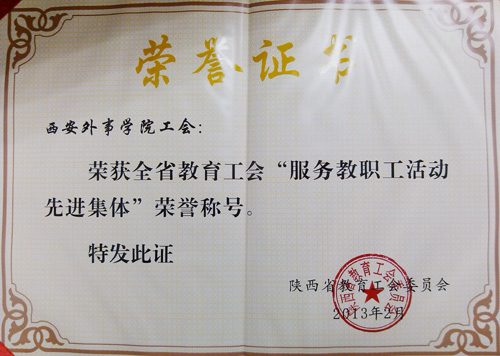 荣誉证书
西安外事学院工会：
荣获全省教育工会“服务教职工活动
先进集体”荣誉称号。
特发此证
陕西省教育工会委员会
2013年2月
陕西省教育工会委员会